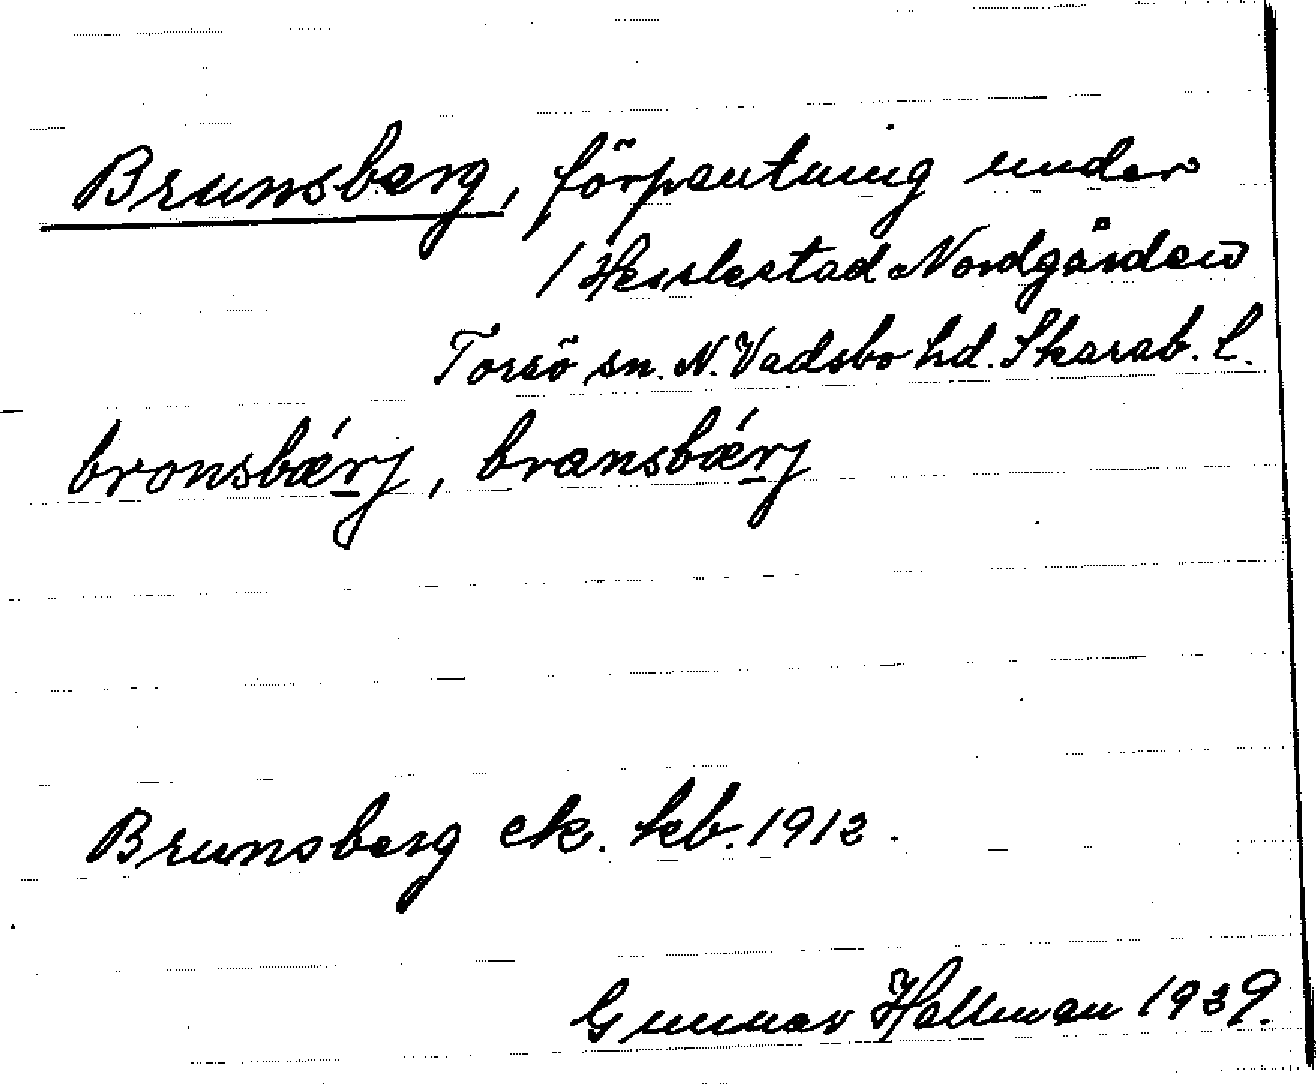 Brunsberg, förpantning under
1 Hesslestad Nordgården
Torsö sn. N. Vadsbo hd. Skarab. l.
bronsbǽrj, bransbǽrj
Brunsberg ek. kb. 1912.
Gunnar Hallman 1939.